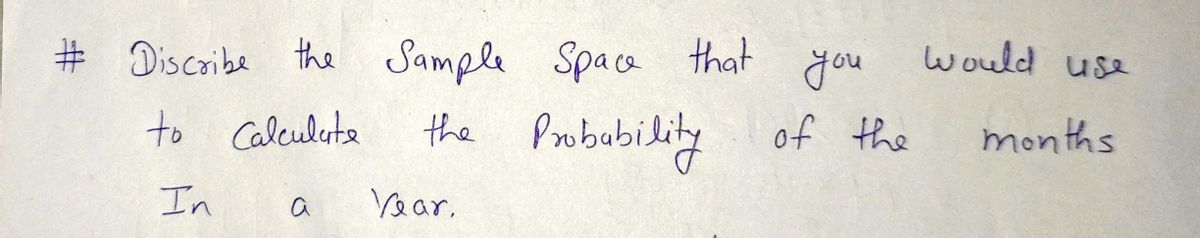 # Discribe the Sample Space that you would use
to Calculate the Probability of the months
In a Year.